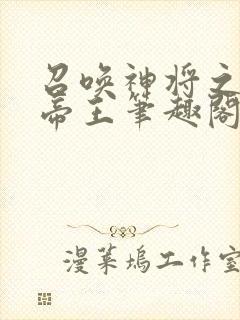 召唤神将之
帝王笔趣阁
漫菓坞工作室